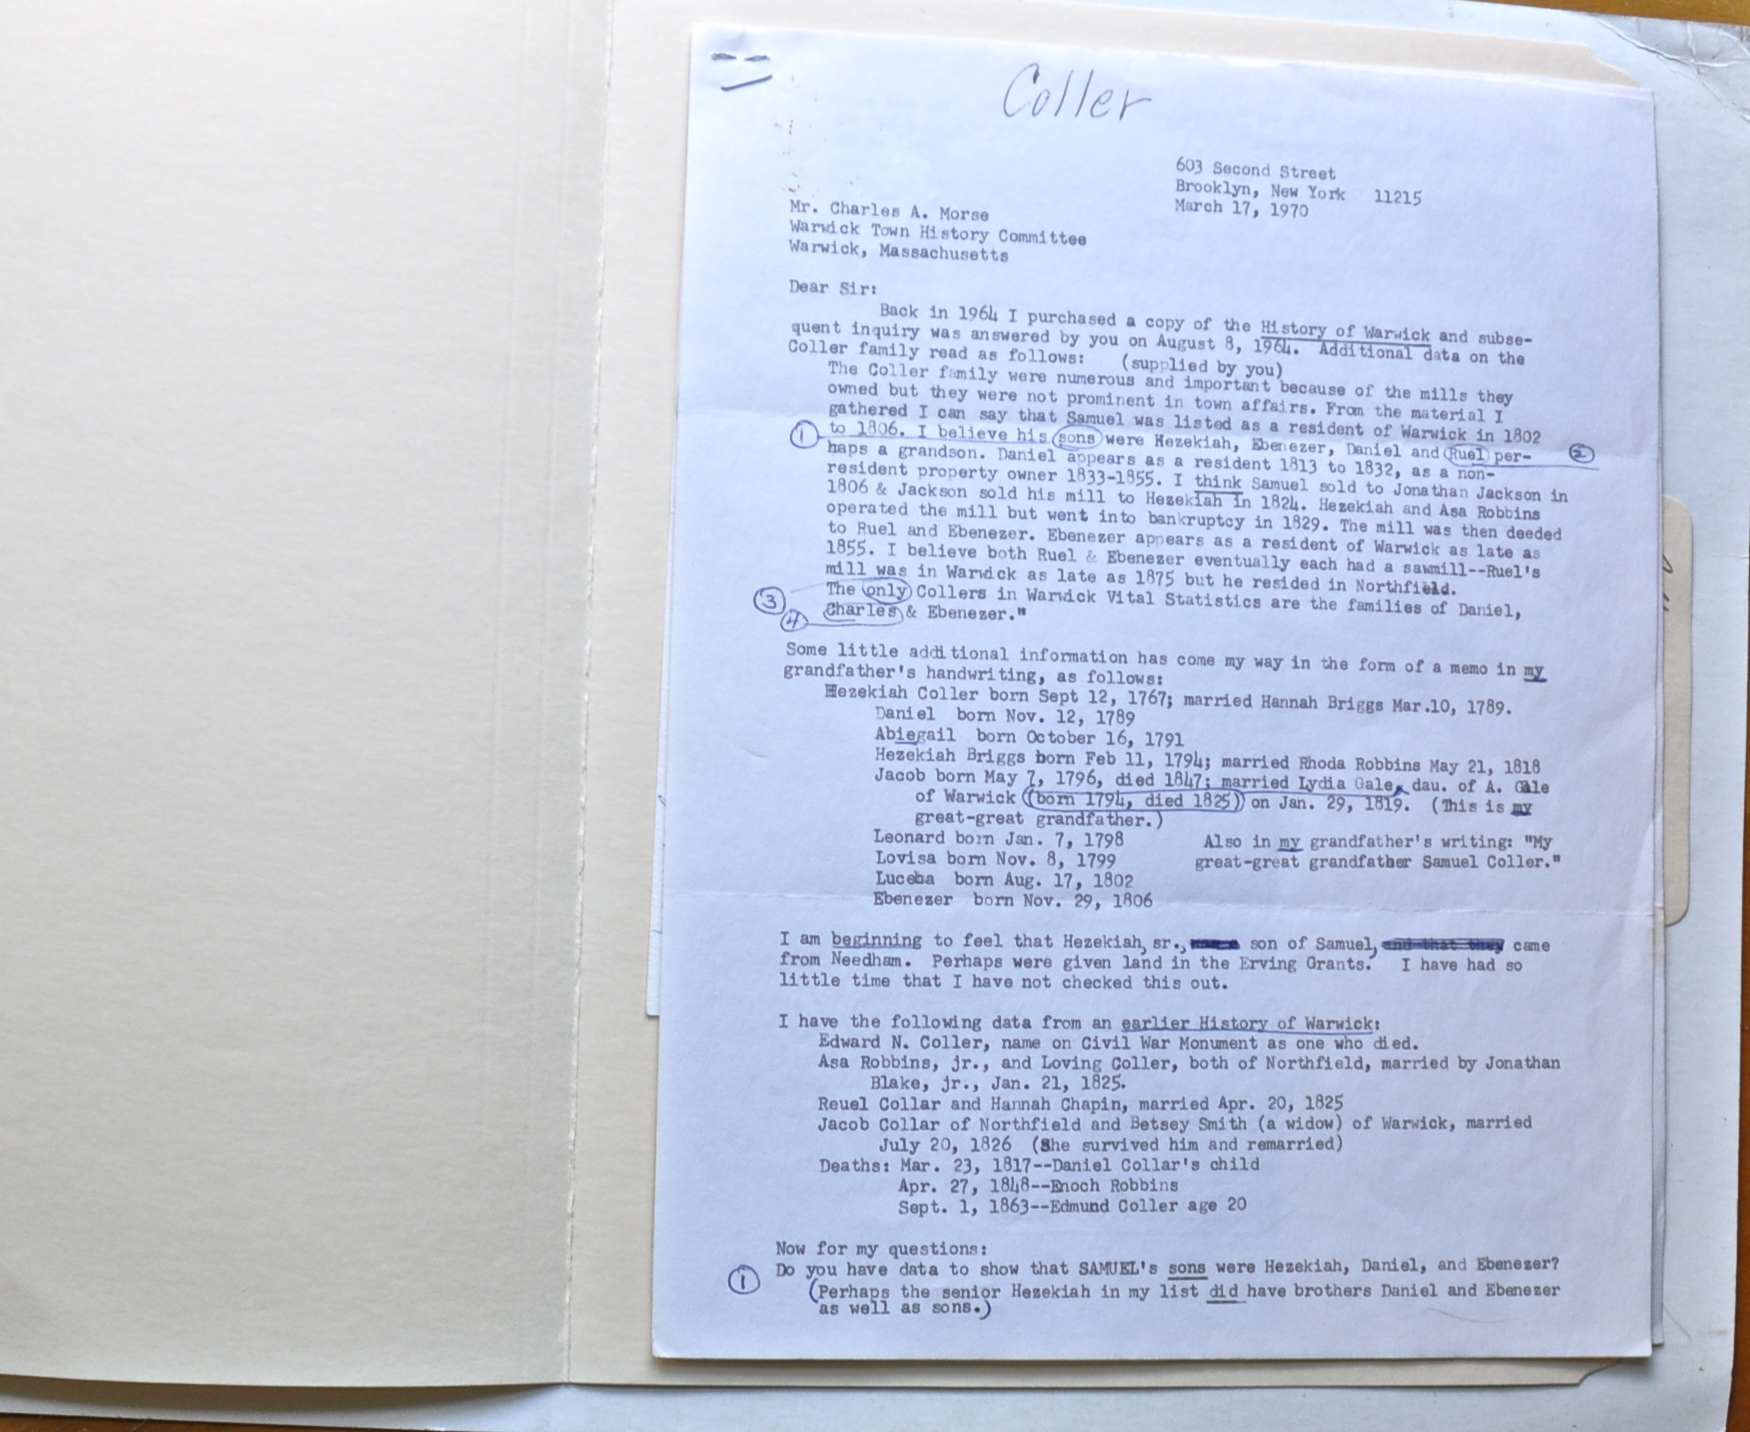 Coller
603 Second Street
Brooklyn, New York 11215
March 17, 1970
Mr. Charles A. Morse
Warwick Town History Committee
Warwick, Massachusetts
Dear Sir:
Back in 1964 I purchased a copy of the History of Warwick and subse-
quent inquiry was answered by you on August 8, 1964. Additional data on the
Coller family read as follows: (supplied by you)
The Coller family were numerous and important because of the mills they
owned but they were not prominent in town affairs. From the material I
gathered I can say that Samuel was listed as a resident of Warwick in 1802
① to 1806. I believe his sons were Hezekiah, Ebenezer, Daniel and Ruel per- ②
haps a grandson. Daniel appears as a resident 1813 to 1832, as a non-
resident property owner 1833-1855. I think Samuel sold to Jonathan Jackson in
1806 & Jackson sold his mill to Hezekiah in 1824. Hezekiah and Asa Robbins
operated the mill but went into bankruptcy in 1829. The mill was then deeded
to Ruel and Ebenezer. Ebenezer appears as a resident of Warwick as late as
1855. I believe both Ruel & Ebenezer eventually each had a sawmill--Ruel's
mill was in Warwick as late as 1875 but he resided in Northfield.
③ The only Collers in Warwick Vital Statistics are the families of Daniel,
④ Charles & Ebenezer."
Some little additional information has come my way in the form of a memo in my
grandfather's handwriting, as follows:
Hezekiah Coller born Sept 12, 1767; married Hannah Briggs Mar.10, 1789.
Daniel born Nov. 12, 1789
Abiegail born October 16, 1791
Hezekiah Briggs born Feb 11, 1794; married Rhoda Robbins May 21, 1818
Jacob born May 7, 1796, died 1847; married Lydia Gale, dau. of A. Gale
of Warwick (born 1794, died 1825) on Jan. 29, 1819. (This is my
great-great grandfather.)
Leonard born Jan. 7, 1798 Also in my grandfather's writing: "My
Lovisa born Nov. 8, 1799 great-great grandfather Samuel Coller."
Luceba born Aug. 17, 1802
Ebenezer born Nov. 29, 1806
I am beginning to feel that Hezekiah, sr., son of Samuel, and that they came
from Needham. Perhaps were given land in the Erving Grants. I have had so
little time that I have not checked this out.
I have the following data from an earlier History of Warwick:
Edward N. Coller, name on Civil War Monument as one who died.
Asa Robbins, jr., and Loving Coller, both of Northfield, married by Jonathan
Blake, jr., Jan. 21, 1825.
Reuel Collar and Hannah Chapin, married Apr. 20, 1825
Jacob Collar of Northfield and Betsey Smith (a widow) of Warwick, married
July 20, 1826 (She survived him and remarried)
Deaths: Mar. 23, 1817--Daniel Collar's child
Apr. 27, 1848--Enoch Robbins
Sept. 1, 1863--Edmund Coller age 20
Now for my questions:
① Do you have data to show that SAMUEL's sons were Hezekiah, Daniel, and Ebenezer?
(Perhaps the senior Hezekiah in my list did have brothers Daniel and Ebenezer
as well as sons.)